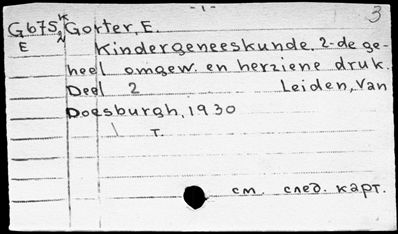 -1-
3
G67S K Gorter, E.
E N Kindergeneeskunde. 2-de ge-
heel omgew. en herziene druk.
Deel 2 Leiden, Van
Doesburgh, 1930
\ T.
см. след. карт.